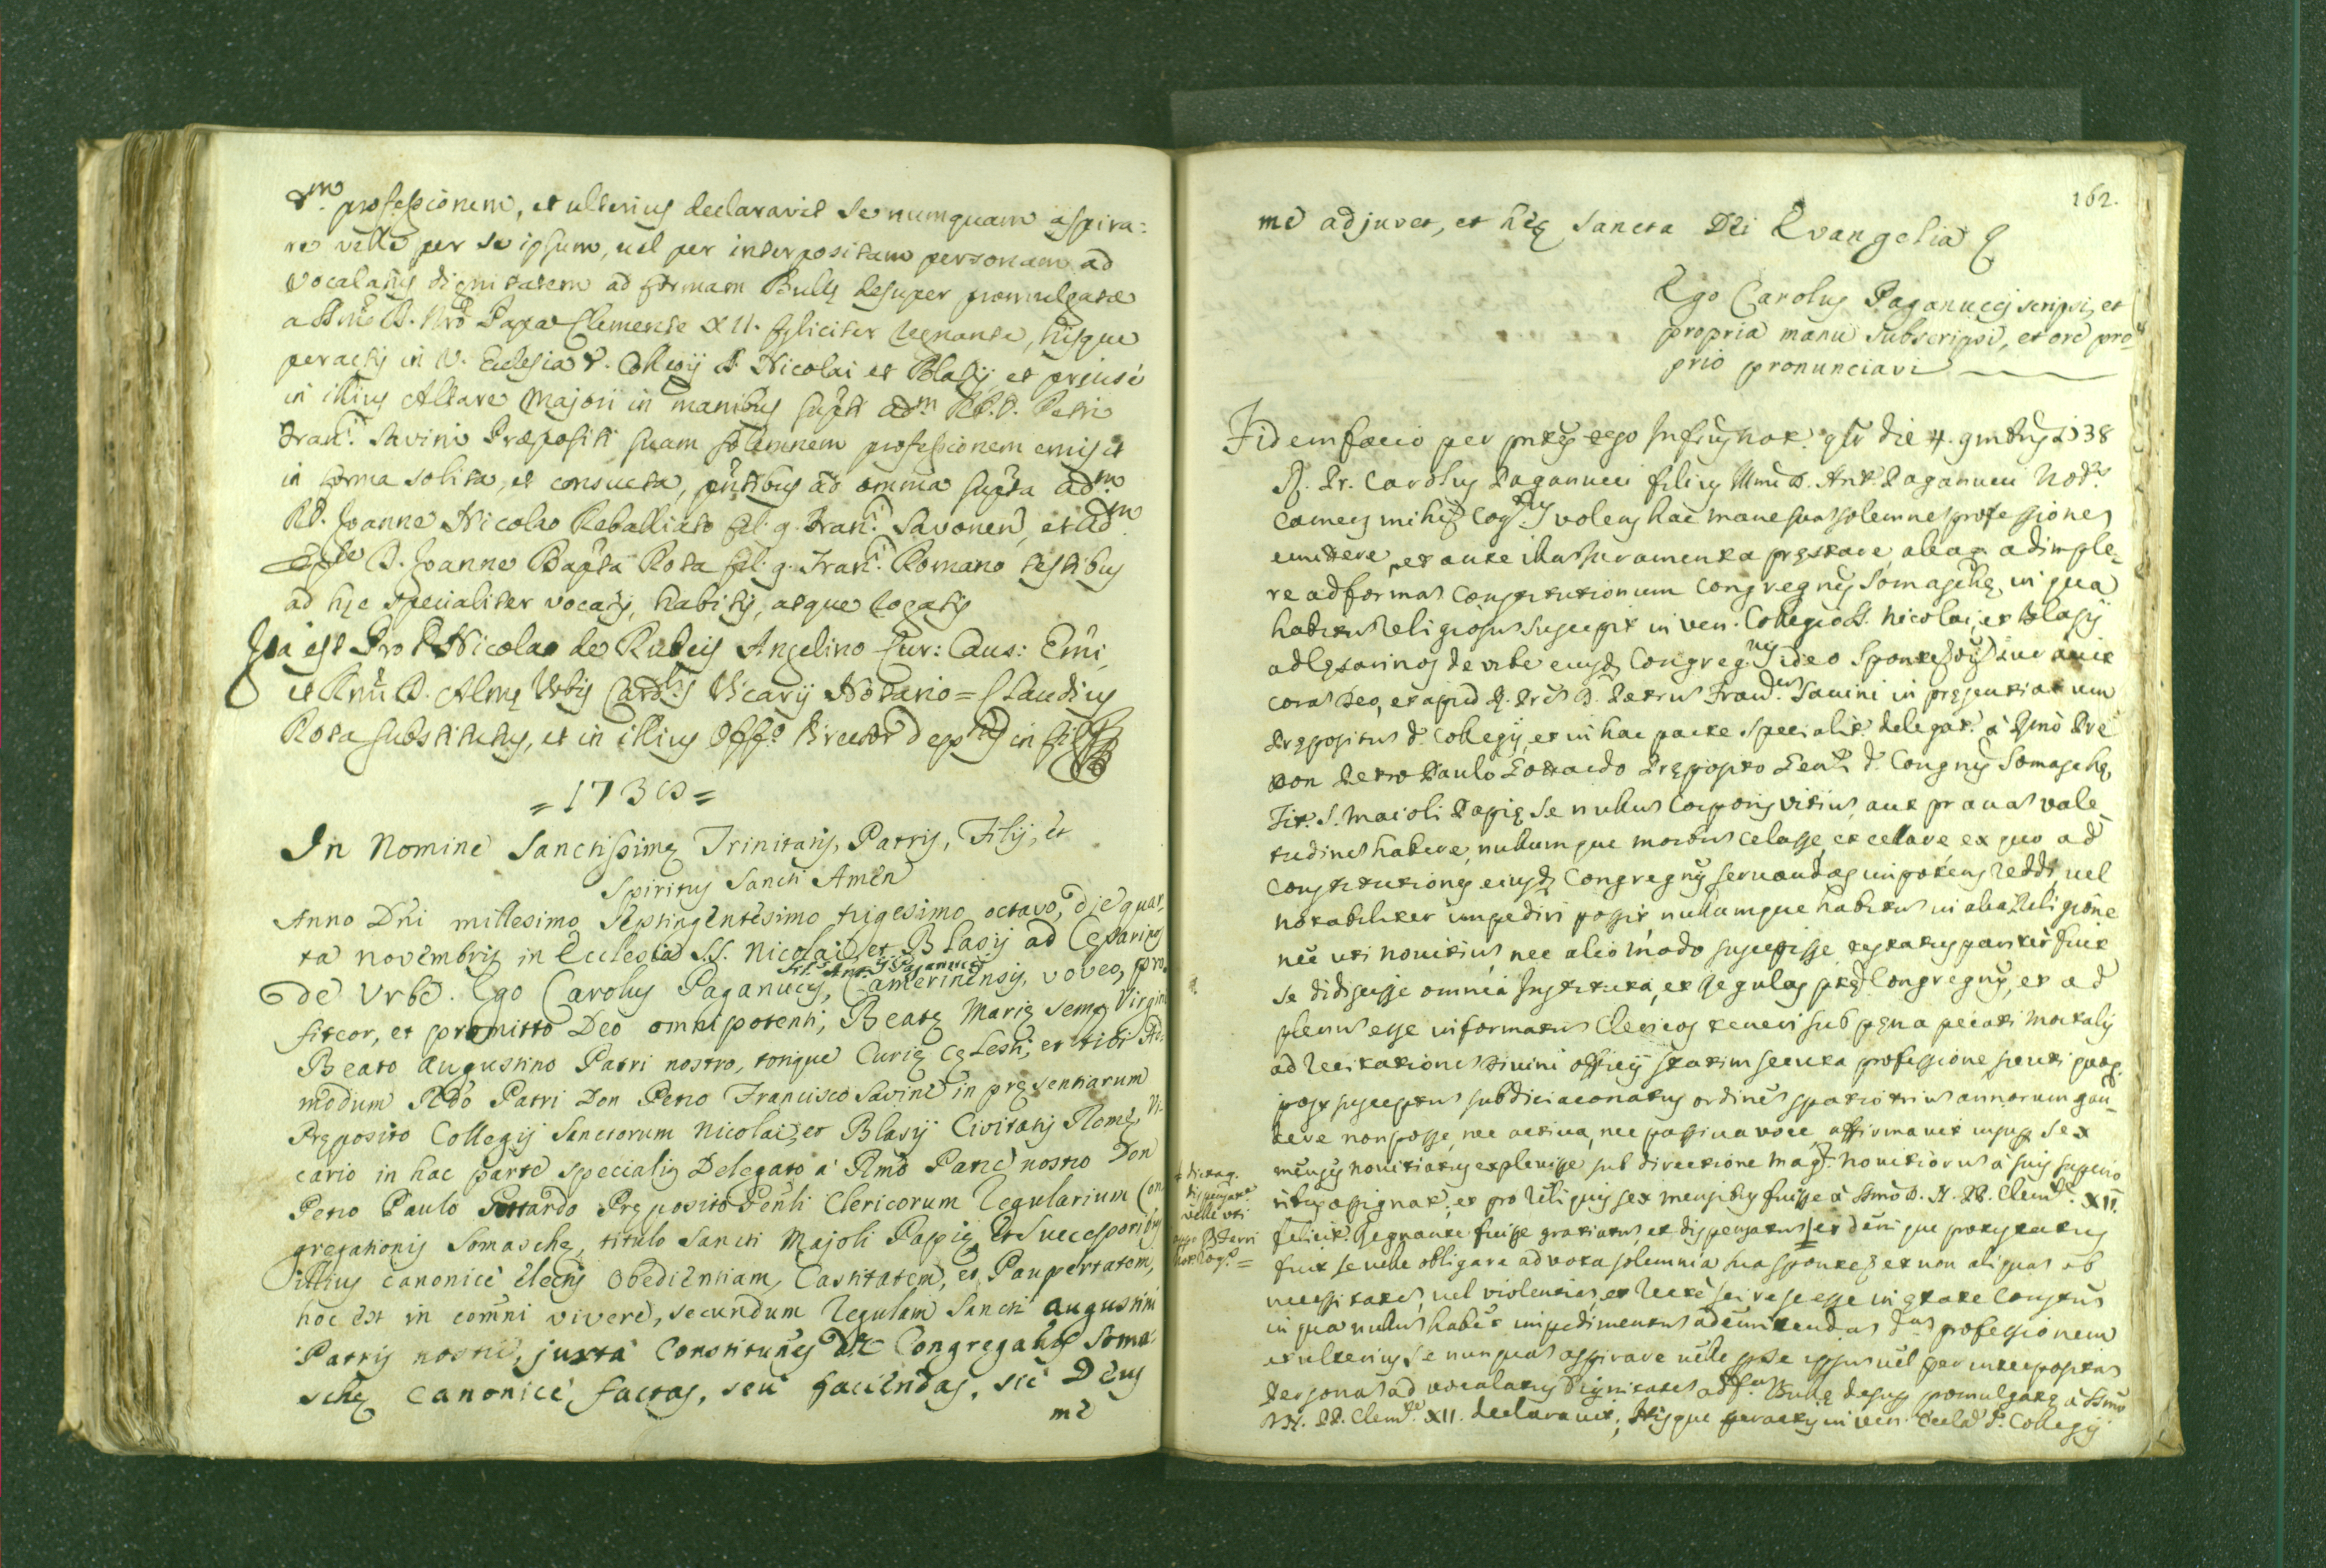 d.m professionem, et ulterius declaravit se numquam aspira:
re velle per se ipsum, vel per interpositam personam ad
Vocalatus dignitatem ad formam Bullę desuper promulgatæ
a SSmo D. Nro Papa Clemente XII. feliciter regnante, hisque
peractis in V. Ecclesia d. Collegij SS Nicolai et Blasij, et
in illius Altare Majori in manibus adm. RP.D. Petri
Fran.ci Savini Præpositi suam solemnem professionem emisit
in forma solita, et consueta, pntibus ad omnia supta adm.
RD. Joanne Nicolao Reballiato fil. q. Fran.ci Savonen, et adm.
D. Joanne Bapta Rota fil. q. Fran.ci Romano testibus
ad hęc specialiter vocatis, habitis, atque rogatis
Ita est Pro D. Nicolao de Rubeis Angelino Cur: Caus: Emi,
et Rmi D. Almę Urbis Card.lis Vicarij Notario = Claudius
Rota substitutus, et in illius Off.o Director deptus in fidem
= 1738 =
In Nomine Sanctissimę Trinitatis, Patris, Filij, et
Spiritus Sancti Amen
Anno Dni millesimo septingentesimo trigesimo octavo, die quar,
ta novembris in Ecclesia S.S. Nicolai, et Blasij ad Cęsarinos
fil. Ant.ij Paganucij
de Urbe. Ego Carolus Paganucij, Camerinensis, voveo, pro,
fiteor, et promitto Deo omnipotenti, Beatę Marię semp Virgini
Beato Augustino Patri nostro, totique Curię cęlesti, et tibi Ad:
modum Rdo Patri Don Petro Francisco Savini in pręsentiarum
Pręposito Collegij Sanctorum Nicolai, et Blasij Civitatis Romę, Vi-
cario in hac parte specialis Delegato a Rmo Patre nostro Don
Petro Paulo Gottardo Pręposito Genli Clericorum Regularium Con
gregationis Somaschę, titulo Sancti Majoli Papię, et Successoribus
illius canonicè electis Obedientiam, Castitatem, et Paupertatem,
hoc est in comni vivere, secundum Regulam Sancti Augustini
Patris nostri, juxta Constitunes Congregatis Soma
schę canonicè factas, seu faciendas, sic Deus
me
162.
me adjuvet, et hęc Sancta Dei Evangelia
Ego Carolus Paganuccij scripsi, et
propria manu subscripsi, et ore pro
prio pronunciavi
Fidem facio per pntes ego Infrus not. qlr die 4. 9mbris 1738
R. Pr. Carolus Paganucci filius Illmi D. Ant. Paganucci Nob.
Camers mihi cog. volens hac mane sua solemne professione
emittere, et ante illa juramenta pręstare, aliaq adimple,
re ad forma Constitutionum Congregnis Somaschę, in qua
habitu religiosu suscepit in ven. Collegio SS. Nicolai, et Blasij
ad Cęsarinos de urbe eiusd Congreg.nis ideo sponte juravit
cora Deo, et apud R. Pre D. Petru Fran.cu Savini in pręsentiarum
Prępositu d. Collegij, et in hac parte specialit. delegat. à Rmo Pre
Don Petro Paulo Gottardo Pręposito Gen.li d. Congnis Somaschę,
Tit. S. Maioli Papię se nullu corporis vitiu, aut prava vale
tudine habere, nullumque morbu celasse, et celare ex quo ad
Constitutiones eiusd Congregnis servandas impotens reddi, vel
notabiliter impediri possit, nullumque habitu in alia Religione
nec uti novitiu, nec alio modo suscepisse, testatus pariter fuit
se didicisse omnia Instituta, et Regulas pted Congregnis, et ad
plenu esse informatu Clericos teneri sub pęna pecati mortalis
ad recitatione Divini officij statim secuta professione sicuti
post susceptu subdiaconatus ordine spatio triu annorum gau
dere non posse, nec activa, nec passiva voce, affirmavit insup sex
menses novitiatus explevisse sub directione mag. novitioru à suis superio
ribus assignat. et pro reliquis sex mensibus fuisse à SSmo D. N. PP. Clem.te XII.
felicit. Regnante fuisse gratiatu, et dispensatu, et denique protestatus
fuit se velle obligare ad vota solemnia sua sponte, et non aliqua ob
necessitate, vel violentia, et recte scire se esse in ętate Constitu
in qua nullu habet impedimentu ad emittenda d.a professionem
et ulterius se nunqua aspirare velle p se ipsu vel per interposita
Persona ad vocalatus dignitate ad fa. Bullę desup promulgatę à SSmo
D.N. PP. Clem.te XII. declaravit, Hisque peractis in ven. Eccla d. Collegij
dispensat.
velle uti
not. rog. =